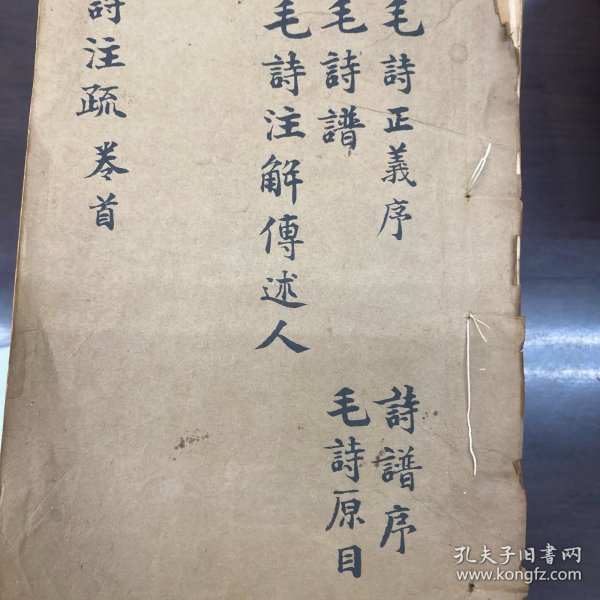 毛詩正義序
詩譜序
毛詩譜
毛詩原目
毛詩注解傳述人
詩注疏 卷首
孔夫子旧书网
www.kongfz.com